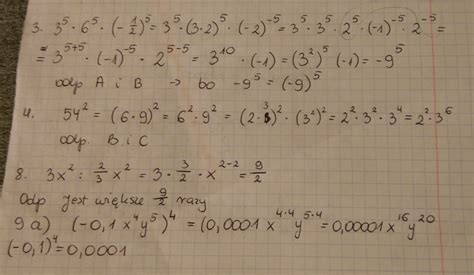 3. 3⁵ · 6⁵ · (-½)⁵ = 3⁵ · (3·2)⁵ · (-2)⁻⁵ = 3⁵ · 3⁵ · 2⁵ · (-1)⁻⁵ · 2⁻⁵ =
= 3⁵⁺⁵ · (-1)⁻⁵ · 2⁵⁻⁵ = 3¹⁰ · (-1) = (3²)⁵ (-1) = -9⁵
odp A i B → bo -9⁵ = (-9)⁵
4. 54² = (6·9)² = 6² · 9² = (2·3)² · (3²)² = 2² · 3² · 3⁴ = 2² · 3⁶
odp. B i C
8. 3x² : ⅔x² = 3 · 3/2 · x²⁻² = 9/2
Odp jest większe 9/2 razy
9.a) (-0,1x⁴y⁵)⁴ = (0,0001 x⁴·⁴ y⁵·⁴ = 0,00001x¹⁶y²⁰
(-0,1)⁴ = 0,0001